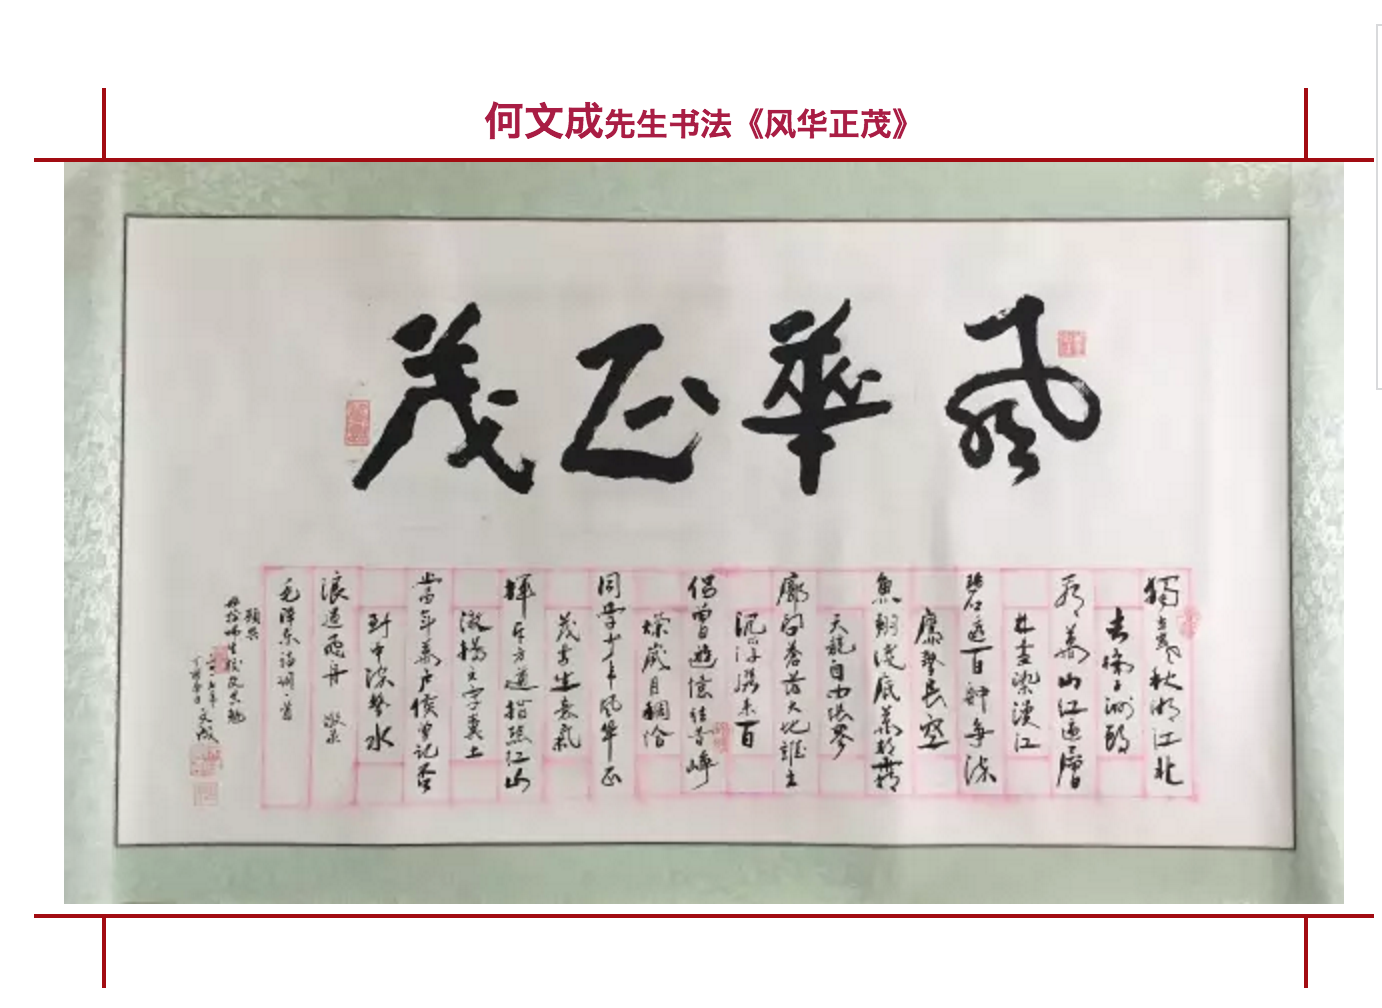 何文成先生书法《风华正茂》
風華正茂
獨立寒秋湘江北
去橘子洲頭
看萬山紅遍層
林盡染漫江
碧透百舸爭流
鷹擊長空
魚翔淺底萬類霜
天競自由悵寥
廓問蒼茫大地誰主
沉浮攜來百
侶曾遊憶往昔崢
嶸歲月稠恰
同學少年風華正
茂書生意氣
揮斥方遒指點江山
激揚文字糞土
當年萬戶侯曾記否
到中流擊水
浪遏飛舟 敬录
毛澤東詩詞一首
願與
母校師生校友共勉
文成